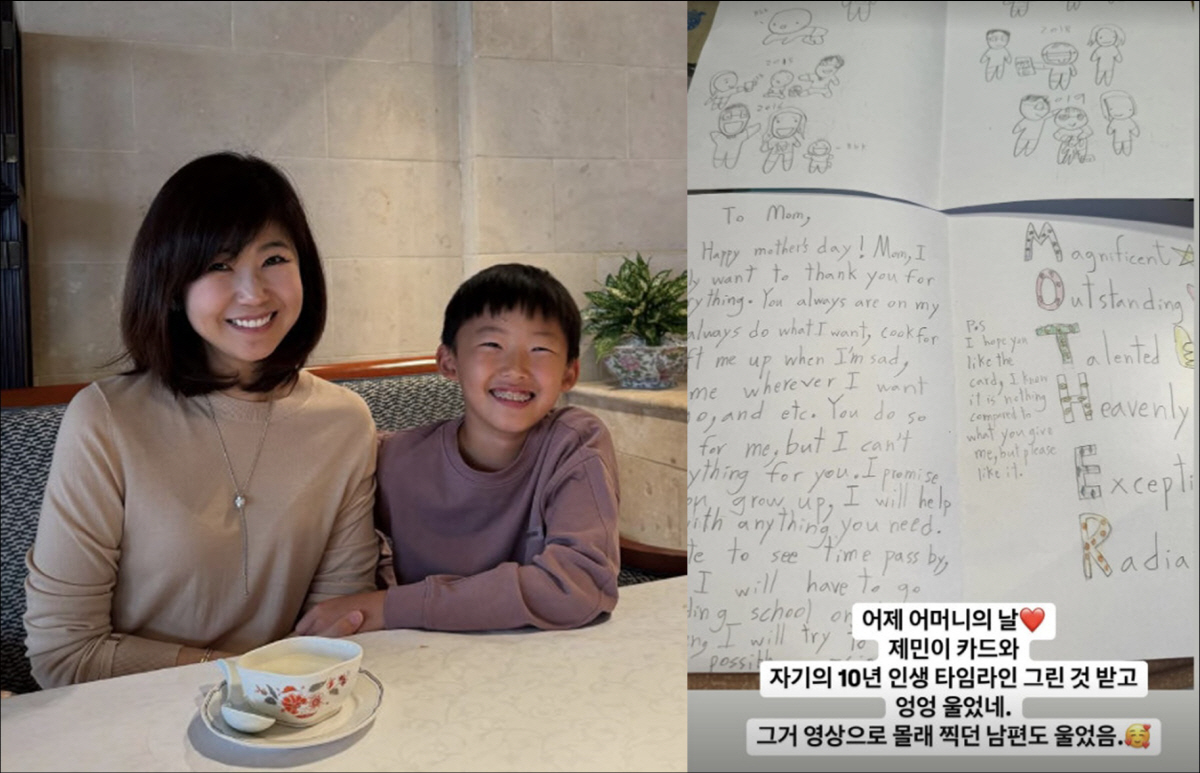 2015
2016
2018
2019
To Mom,
Happy mother's day! Mom, I
want to thank you for
ything. You always are on my
always do what I want, cook for
ft me up when I'm sad,
me wherever I want
o, and etc. You do so
for me, but I can't
ything for you. I promise
grow up, I will help
ith anything you need.
to see time pass by,
I will have to go
ding school
I will try to
possib
Magnificent
Outstanding
Talented
Heavenly
Excepti
Radia
P.S
I hope you
like the
card, I know
it is nothing
compared to
what you give
me, but please
like it.
어제 어머니의 날❤️
제민이 카드와
자기의 10년 인생 타임라인 그린 것 받고
엉엉 울었네.
그거 영상으로 몰래 찍던 남편도 울었음.🥰